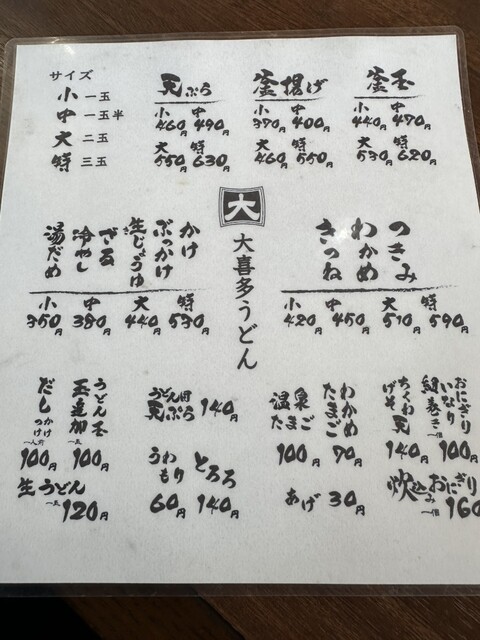 サイズ
小 一玉
中 一玉半
大 二玉
特 三玉
天ぷら
小 中
460円 490円
大 特
550円 630円
釜揚げ
小 中
370円 400円
大 特
460円 550円
釜玉
小 中
440円 470円
大 特
530円 620円
大
大喜多うどん
つきみ
わかめ
きつね
小 中 大 特
420円 450円 510円 590円
かけ
ぶっかけ
生じょうゆ
ざる
冷やし
湯だめ
小 中 大 特
350円 380円 440円 530円
おにぎり
いなり
細巻き 一個
100円
ちくわ天
げそ天
140円
炊込みおにぎり
一個
160
わかめ
たまご
70円
温泉たまご
100円
あげ 30円
うどん用
天ぷら 140円
とろろ
140円
うわもり
60円
うどん玉
玉追加
一玉
100円
だし かけ つけ
一人前
100円
生うどん
一玉
120円